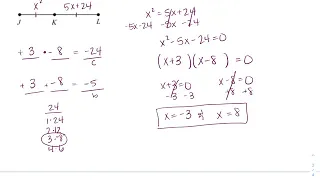 x² 5x+24
J K L
+ 3 · - 8 = -24
c
+ 3 + - 8 = -5
b
24
1·24
2·12
3·-8
4·6
x² = 5x+24
-5x-24 -5x -24
x²-5x-24=0
(x+3)(x-8)=0
x+3=0 x-8=0
-3 -3 +8 +8
x=-3 x=8